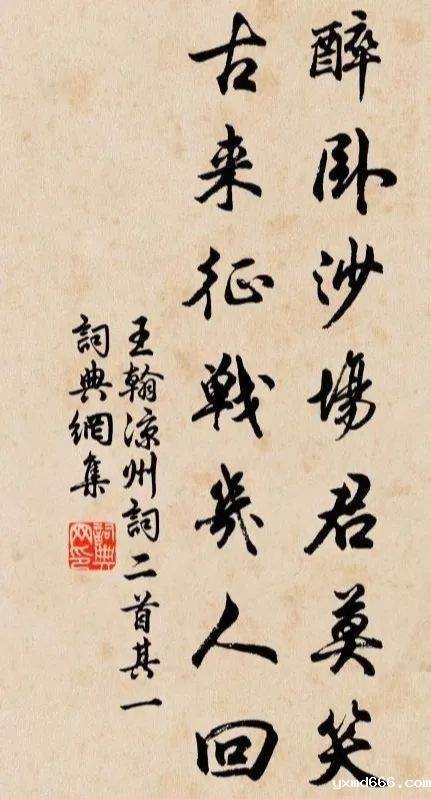 醉卧沙場君莫笑
古来征戰幾人回
王翰涼州詞二首其一
詞典網集
詞典
网印
yxmd666.com